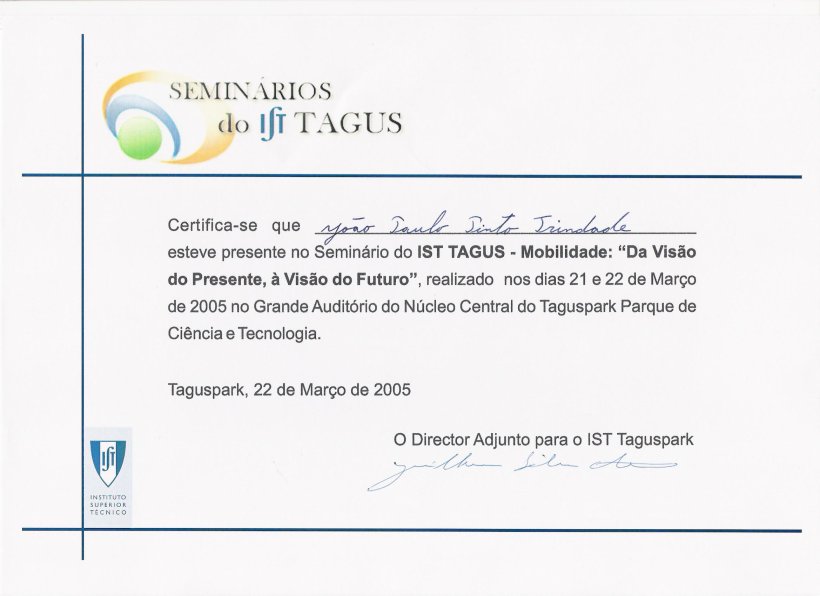 SEMINÁRIOS
do IST TAGUS
Certifica-se que João Paulo Pinto Trindade
esteve presente no Seminário do IST TAGUS - Mobilidade: “Da Visão
do Presente, à Visão do Futuro”, realizado nos dias 21 e 22 de Março
de 2005 no Grande Auditório do Núcleo Central do Taguspark Parque de
Ciência e Tecnologia.
Taguspark, 22 de Março de 2005
O Director Adjunto para o IST Taguspark
IST
INSTITUTO
SUPERIOR
TÉCNICO